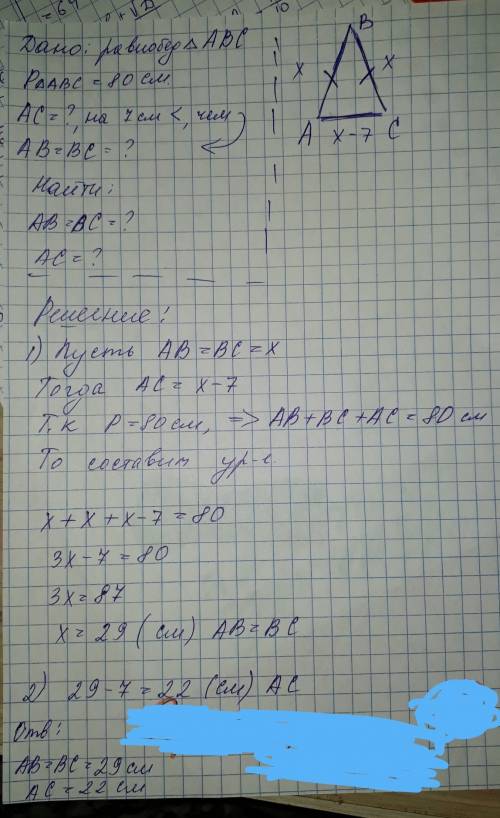 = 64
n + √D
10
Дано: равнобед △ ABC
P△ABC = 80 см.
AC = ?, на 7 см <, чем
AB = BC = ?
Найти:
AB = BC = ?
AC = ?
B
x x
A x-7 C
Решение:
1) Пусть AB = BC = x
Тогда AC = x-7
Т.к P = 80 см, => AB + BC + AC = 80 см
То составим ур-е.
x + x + x - 7 = 80
3x - 7 = 80
3x = 87
x = 29 (см) AB = BC
2) 29 - 7 = 22 (см) AC
Отв:
AB = BC = 29 см
AC = 22 см